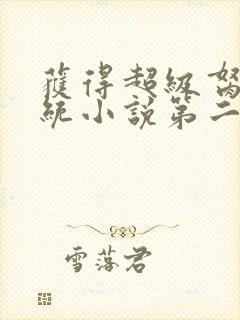 獲得超級
統小說第二
雪落君